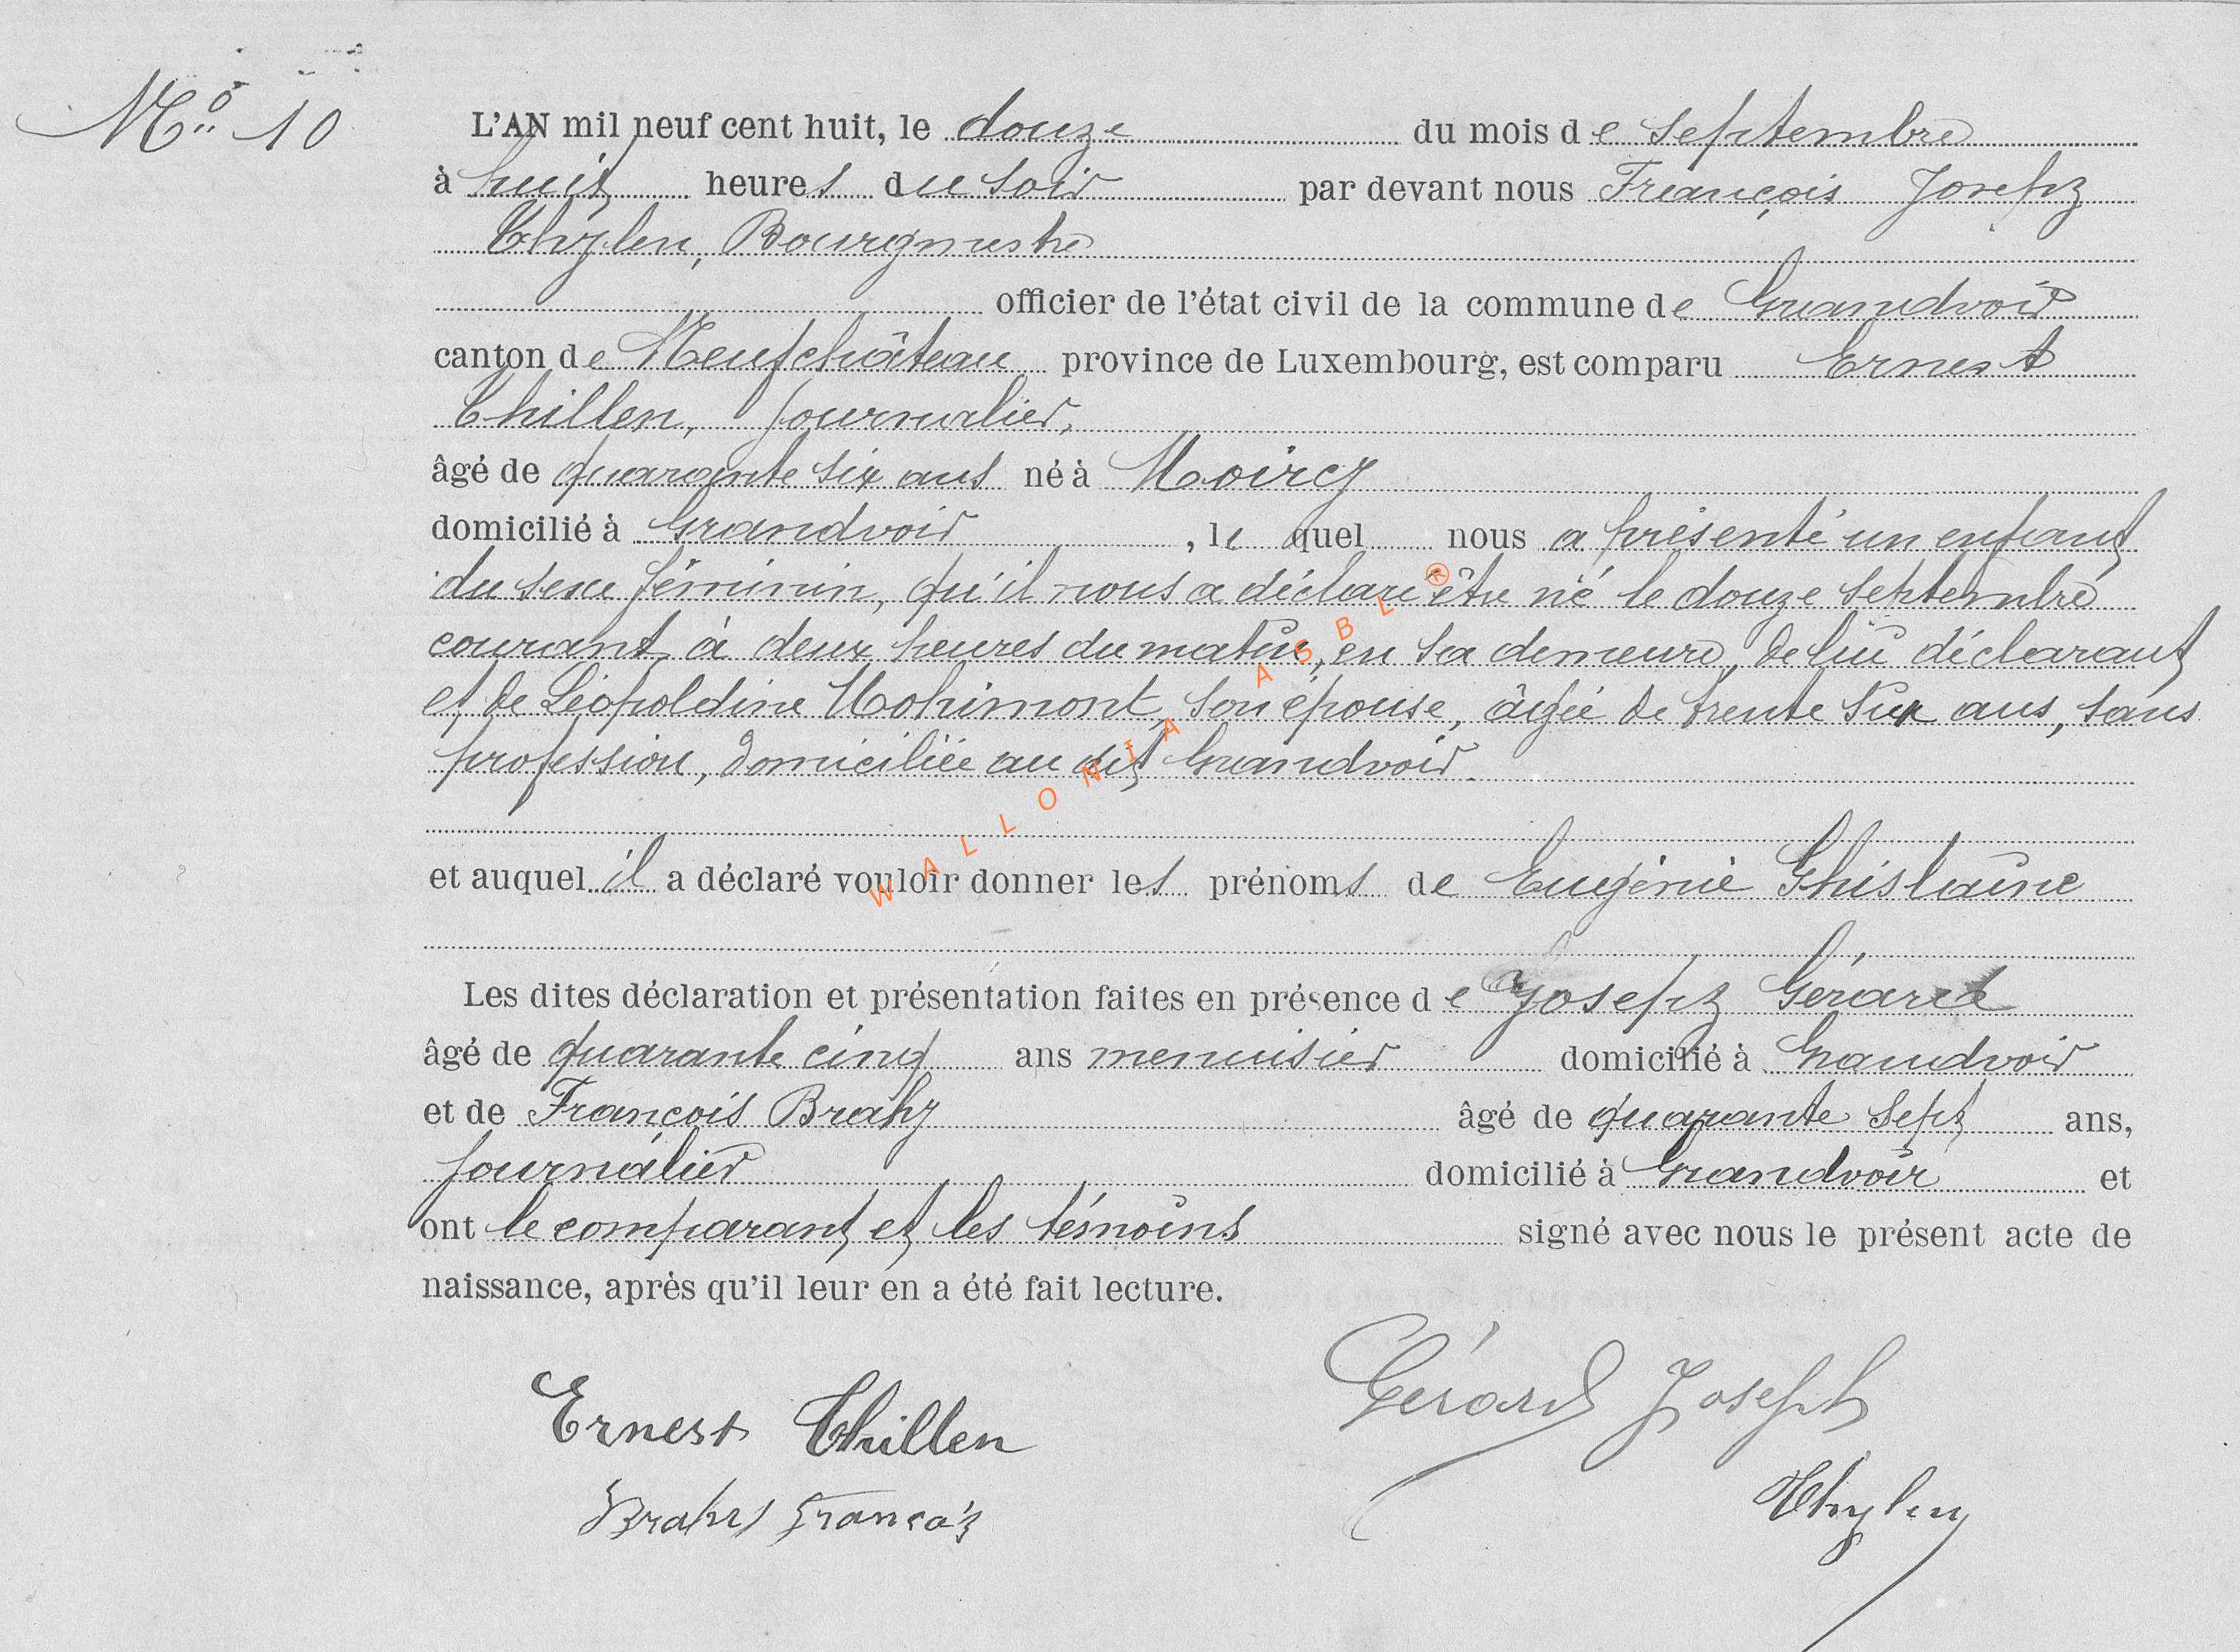 N° 10
L'AN mil neuf cent huit, le douze du mois de septembre
à huit heures du soir par devant nous François Joseph
Thylen, Bourgmestre
officier de l'état civil de la commune de Grandvoir
canton de Neufchâteau province de Luxembourg, est comparu Ernest
Thillen, journalier,
âgé de quarante six ans né à Moircy
domicilié à Grandvoir, lequel nous a présenté un enfant
du sexe féminin, qu'il nous a déclaré être né le douze septembre
courant à deux heures du matin, en sa demeure, de lui déclarant
et de Léopoldine Mohimont, son épouse, âgée de trente ans, sans
profession, domiciliée au dit Grandvoir.
et auquel il a déclaré vouloir donner les prénoms de Eugénie Ghislaine
Les dites déclaration et présentation faites en présence de Joseph Gérard
âgé de quarante cinq ans menuisier domicilié à Grandvoir
et de François Brahy âgé de quarante sept ans,
journalier domicilié à Grandvoir et
ont le comparant et les témoins signé avec nous le présent acte de
naissance, après qu'il leur en a été fait lecture.
Gérard Joseph
Ernest Thillen
Thylen
Brahy François
WALLONIA ASBL ®